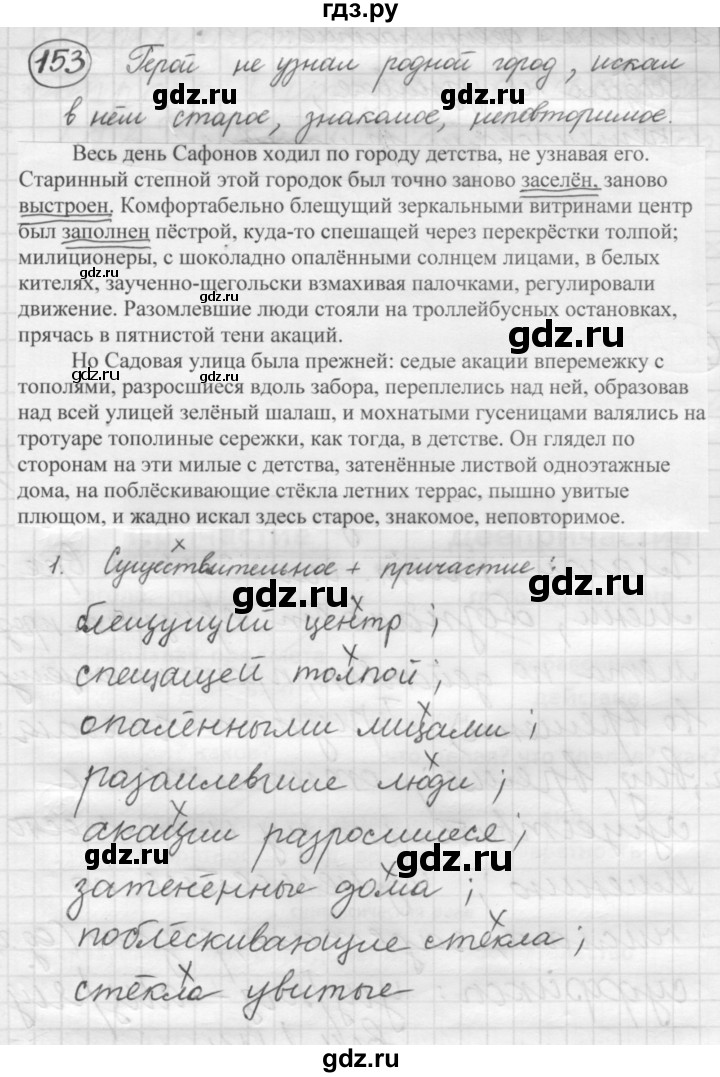 гдз.ру
153 Герой не узнал родной город, искал
в нём старое, знакомое, неповторимое.
gdz.ru gdz.ru
Весь день Сафонов ходил по городу детства, не узнавая его.
Старинный степной этой городок был точно заново заселён, заново
выстроен. Комфортабельно блещущий зеркальными витринами центр
был заполнен пёстрой, куда-то спешащей через перекрёстки толпой;
милиционеры, с шоколадно опалёнными солнцем лицами, в белых
gdz.ru
кителях, заученно-щегольски взмахивая палочками, регулировали
gdz.ru
движение. Разомлевшие люди стояли на троллейбусных остановках,
прячась в пятнистой тени акаций.
Но Садовая улица была прежней: седые акации вперемежку с
gdz.ru gdz.ru
тополями, разросшиеся вдоль забора, переплелись над ней, образовав
над всей улицей зелёный шалаш, и мохнатыми гусеницами валялись на
тротуаре тополиные сережки, как тогда, в детстве. Он глядел по
сторонам на эти милые с детства, затенённые листвой одноэтажные
дома, на поблёскивающие стёкла летних террас, пышно увитые
плющом, и жадно искал здесь старое, знакомое, неповторимое.
1. Существительное + причастие:
gdz.ru gdz.ru
блещущий центр;
спещащей толпой;
опалёнными лицами;
разомлевшие люди;
акации разросшиеся;
gdz.ru gdz.ru
затенённые дома;
поблёскивающие стёкла;
стёкла увитые
gdz.ru